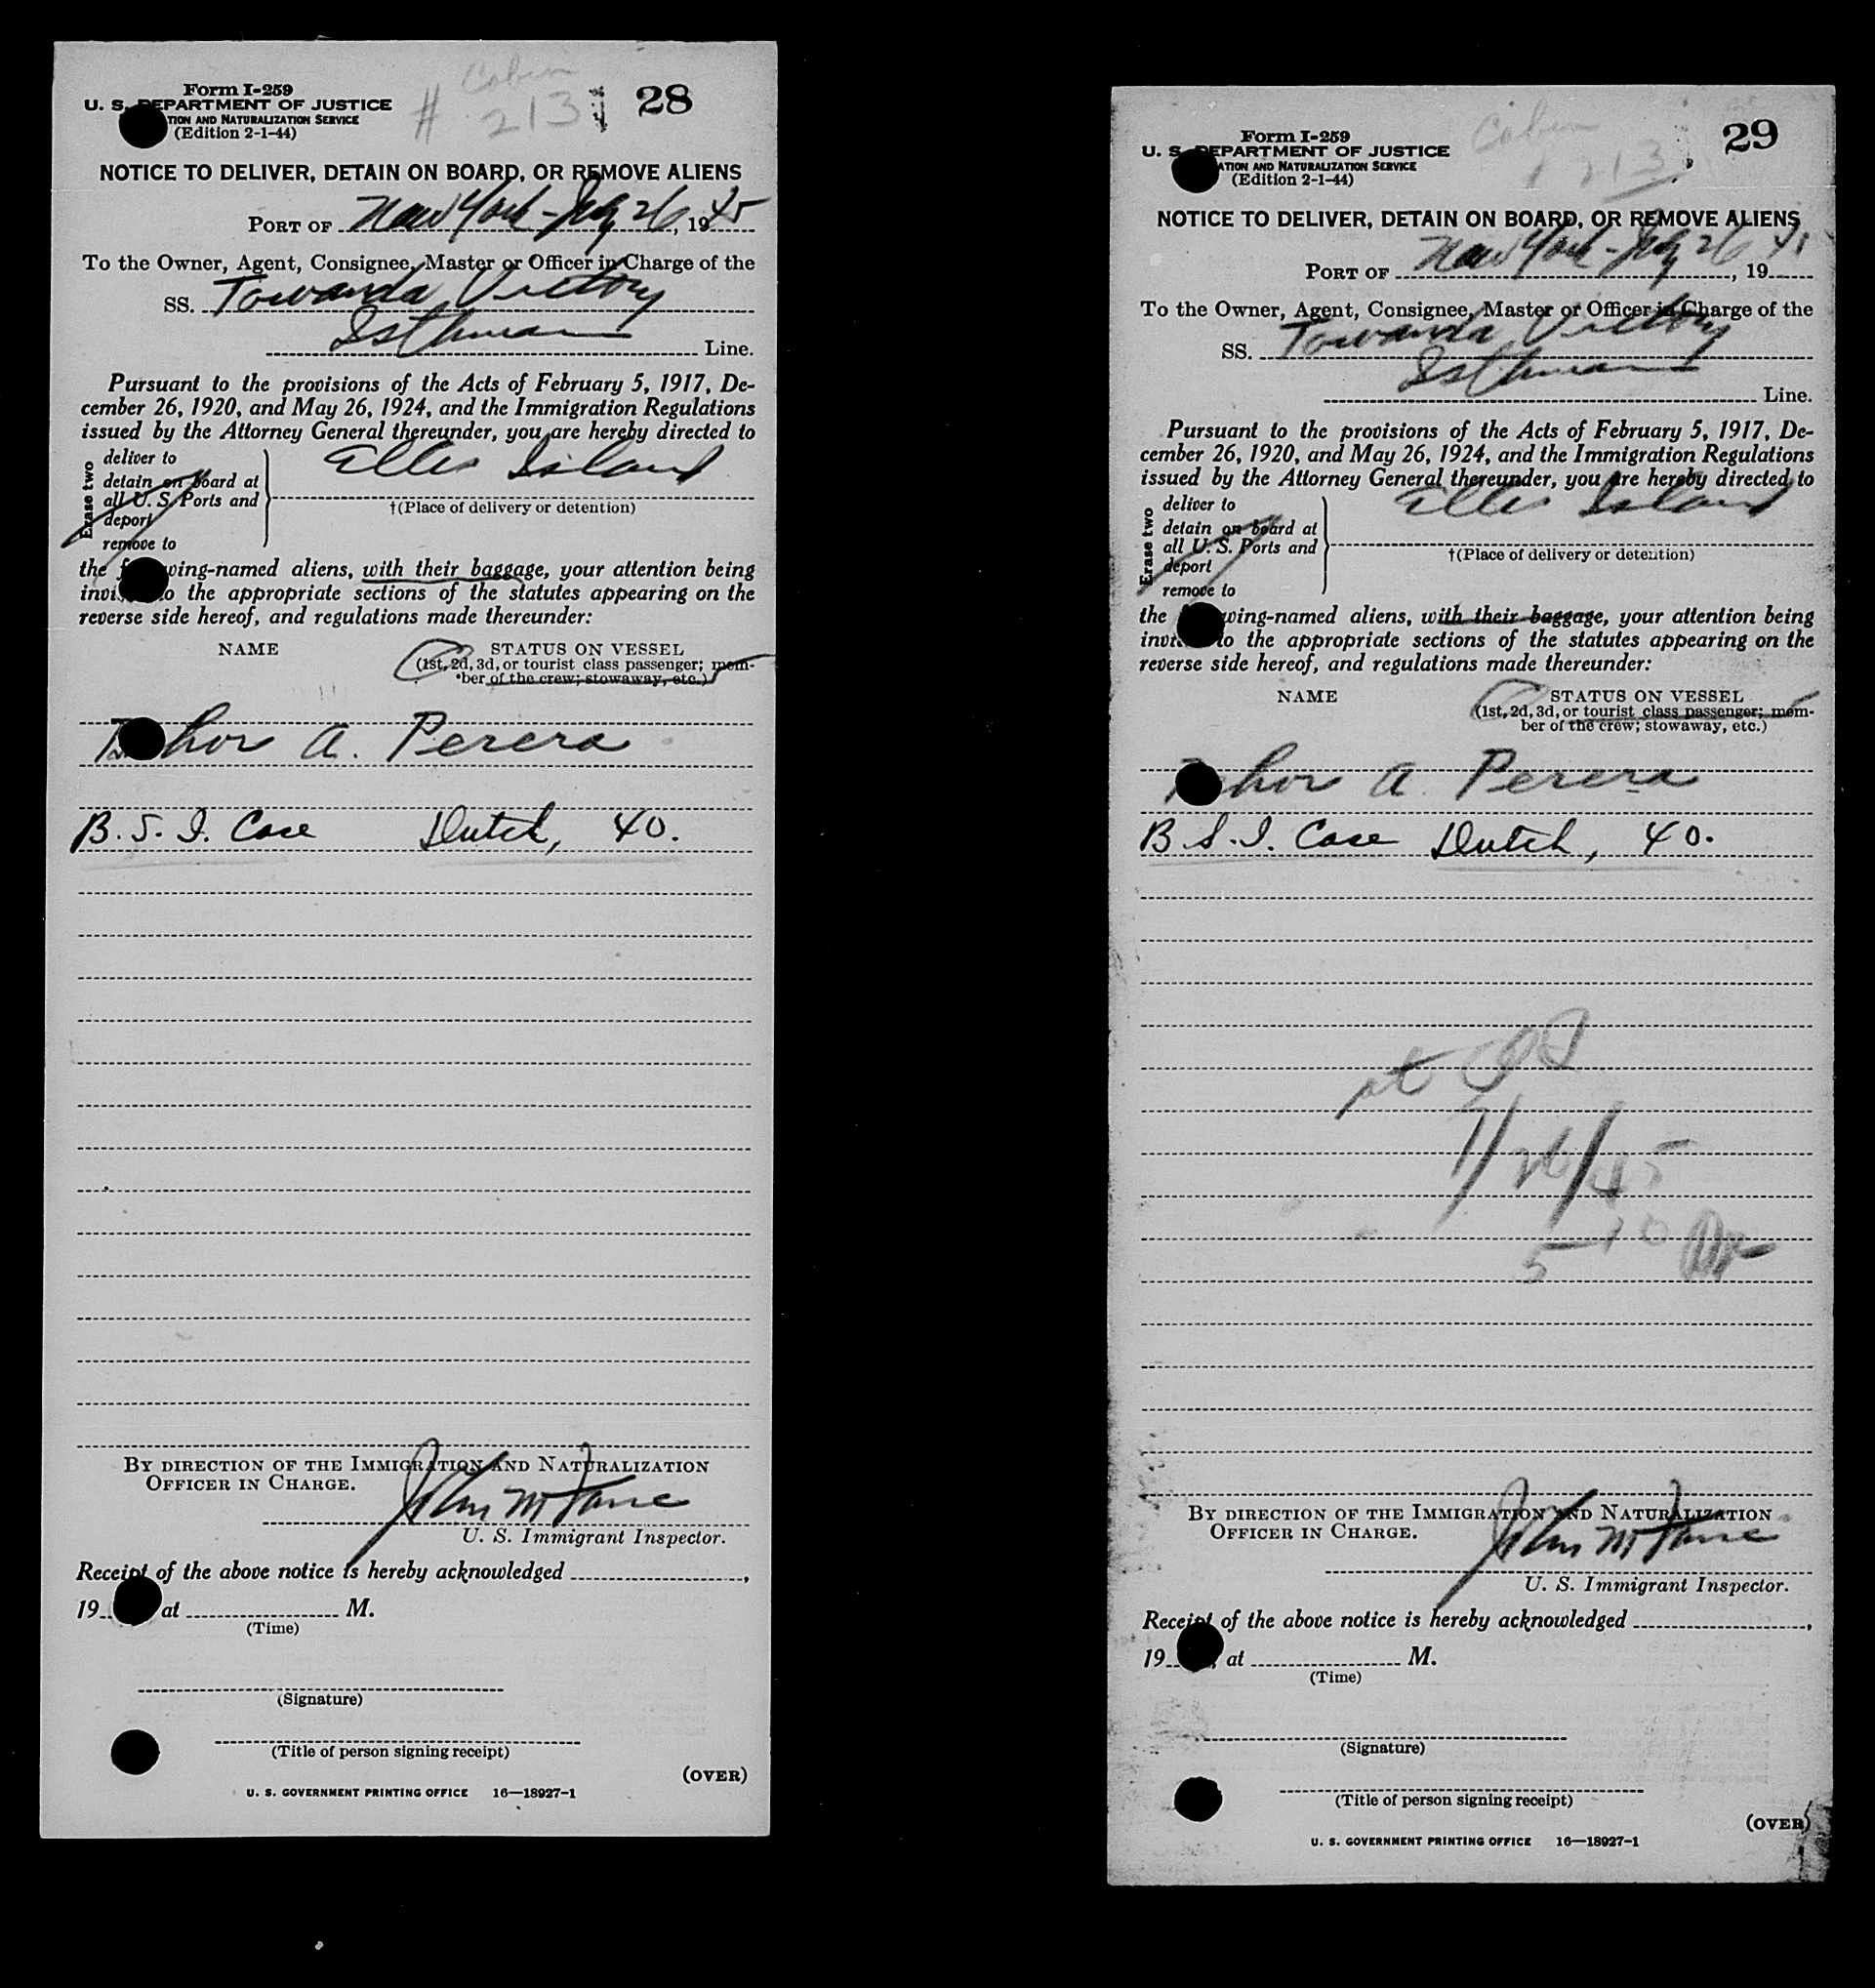 Cabin
# 213
28
Form I-259
U. S. DEPARTMENT OF JUSTICE
TION AND NATURALIZATION SERVICE
(Edition 2-1-44)
NOTICE TO DELIVER, DETAIN ON BOARD, OR REMOVE ALIENS
PORT OF New York - 26, 1945
To the Owner, Agent, Consignee, Master or Officer in Charge of the
SS. Towanda Victory
Isthmian Line.
Pursuant to the provisions of the Acts of February 5, 1917, De-
cember 26, 1920, and May 26, 1924, and the Immigration Regulations
issued by the Attorney General thereunder, you are hereby directed to
Erase two
deliver to
detain on board at
all U. S. Ports and
deport
remove to
Ellis Island
†(Place of delivery or detention)
the wing-named aliens, with their baggage, your attention being
invi o the appropriate sections of the statutes appearing on the
reverse side hereof, and regulations made thereunder:
NAME STATUS ON VESSEL
(1st, 2d, 3d, or tourist class passenger; mem-
ber of the crew; stowaway, etc.)
hor A. Perera
B. S. I. Case Dutch, 40.
BY DIRECTION OF THE IMMIGRATION AND NATURALIZATION
OFFICER IN CHARGE.
John M
U. S. Immigrant Inspector.
Receipt of the above notice is hereby acknowledged ,
19 at M.
(Time)
(Signature)
(Title of person signing receipt)
(OVER)
U. S. GOVERNMENT PRINTING OFFICE 16—18927-1
Cabin
213
29
Form I-259
U. S. DEPARTMENT OF JUSTICE
ATION AND NATURALIZATION SERVICE
(Edition 2-1-44)
NOTICE TO DELIVER, DETAIN ON BOARD, OR REMOVE ALIENS
PORT OF New York - 26, 19
To the Owner, Agent, Consignee, Master or Officer in Charge of the
SS. Towanda Victory
Isthmian Line.
Pursuant to the provisions of the Acts of February 5, 1917, De-
cember 26, 1920, and May 26, 1924, and the Immigration Regulations
issued by the Attorney General thereunder, you are hereby directed to
Erase two
deliver to
detain on board at
all U. S. Ports and
deport
remove to
Ellis Island
†(Place of delivery or detention)
the wing-named aliens, with their baggage, your attention being
invi to the appropriate sections of the statutes appearing on the
reverse side hereof, and regulations made thereunder:
NAME STATUS ON VESSEL
(1st, 2d, 3d, or tourist class passenger; mem-
ber of the crew; stowaway, etc.)
hor A. Perera
B. S. I. Case Dutch, 40.
at
7/26/45
5 10
BY DIRECTION OF THE IMMIGRATION AND NATURALIZATION
OFFICER IN CHARGE.
John M
U. S. Immigrant Inspector.
Receipt of the above notice is hereby acknowledged ,
19 , at M.
(Time)
(Signature)
(Title of person signing receipt)
(OVER)
U. S. GOVERNMENT PRINTING OFFICE 16—18927-1